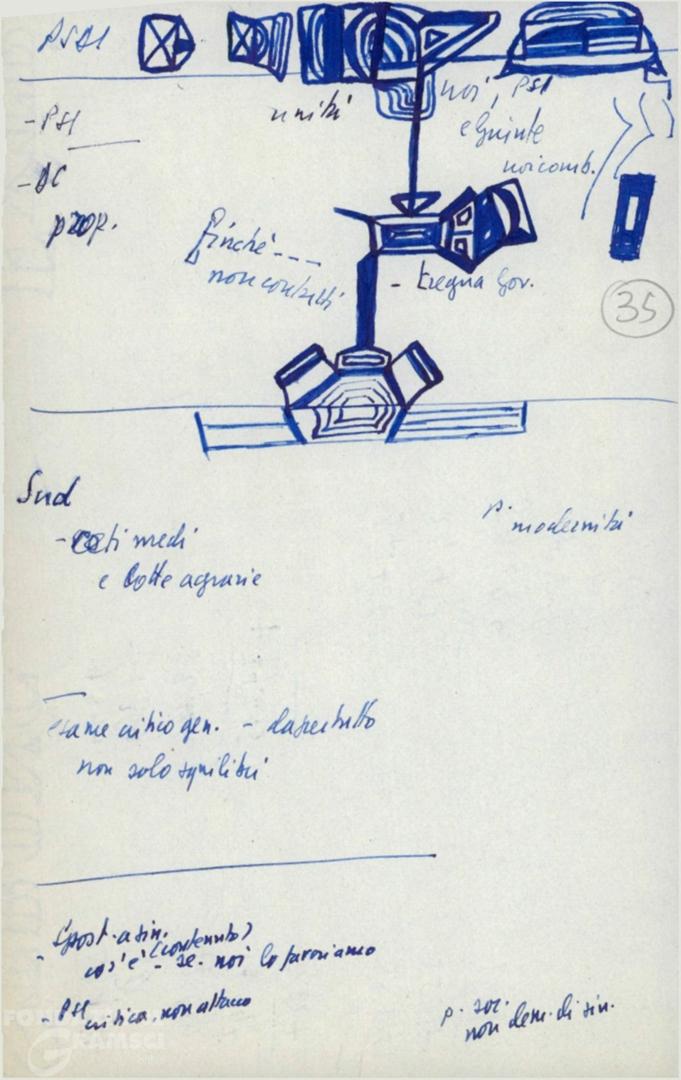 PSDI
unità
noi, PSI
e Quinte
noi comb.
- PSI
- DC
prop.
Finché ---
non contatti
- tregua Gov.
35
Sud
- ceti medi
e lotte agrarie
p. modernità
esame critico gen. -
non solo squilibri
- Spost. a sin.
(contenuto)
cos'è - se noi lo favoriamo
- PSI
critica, non attacco
p. soc.
non dem. di sin.
FONDAZIONE
GRAMSCI